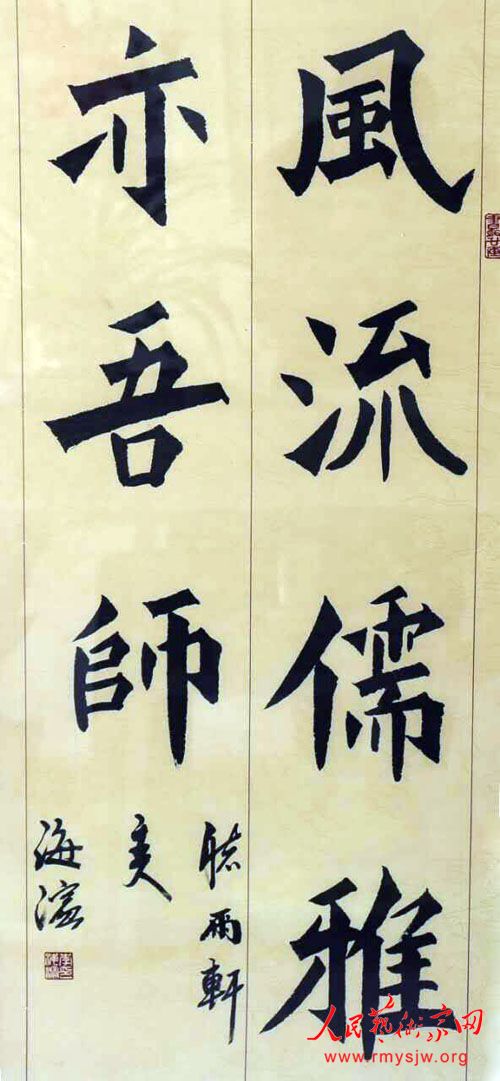 風流儒雅
亦吾師
聽雨軒
海
人民藝術家网
www.rmysjw.org